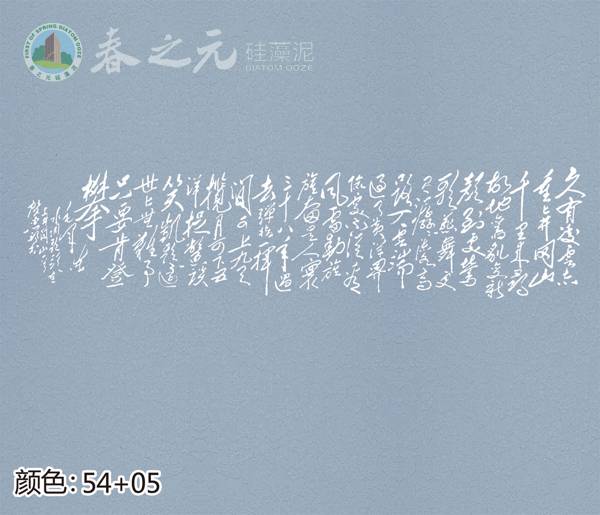 春之元
硅藻泥
DIATOM OOZE
FIRST OF SPRING DIATOM OOZE
春之元硅藻泥
久有凌云志
重上井冈山
千里来寻
故地旧貌变新
颜到处莺
歌燕舞更
有潺潺流水高
路入云端
过了黄洋界
险处不须看
风雷动旌
旗奋是人寰
三十八年过
去弹指一挥
间可上九天
揽月可下五
洋捉鳖谈
笑凯歌还
世上无难事
只要肯登
攀
颜色:54+05